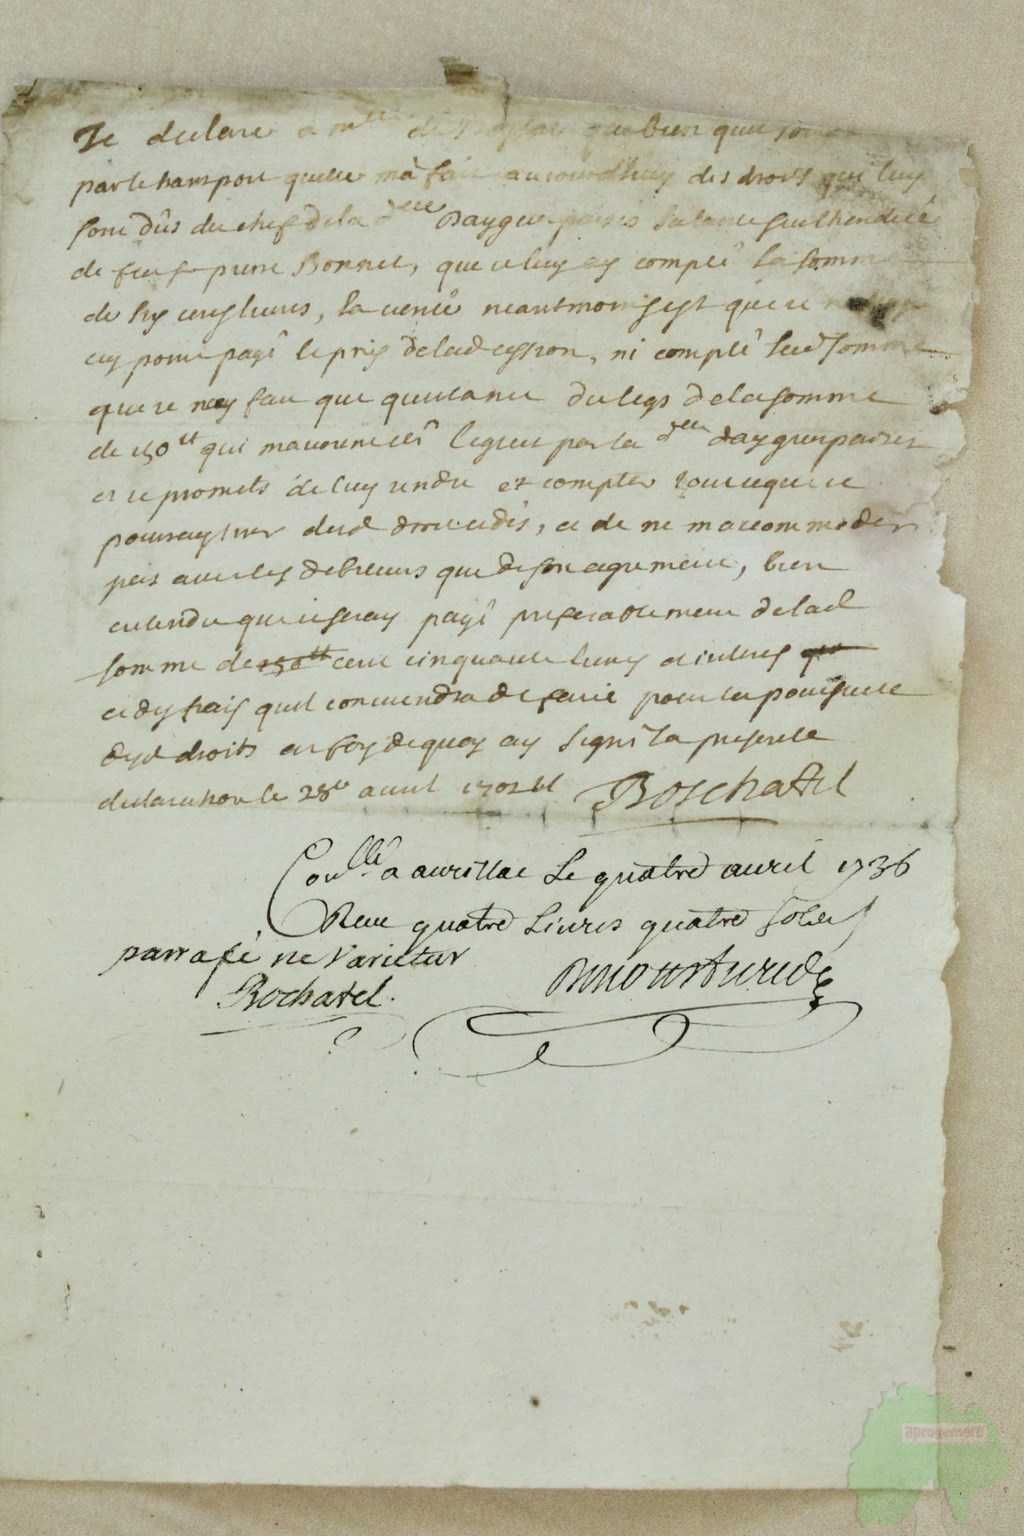 Je declare a m^lle de que bien que
par le transport quelle m'a fait aujourdhuy des droits qui luy
sont dûs du chef de la d^elle Dayguesparses sa tante
de feu s^r pierre Bonnet, que je luy ay compté la somme
de six cens livres, la verité neantmoins est que je
ay point payé le prix de lad cession, ni compté lad somme
que je n'ay fait que quittance du legs de la somme
de 150^tt qui m'avoient eté legués par la d^elle dayguesparses
et je promets de luy rendre et compter tout ce que je
pourray tirer desd droits cedés, et de ne m'accommoder
pas avec les debiteurs que de son agrement, bien
entendu que je seray payé preferablement de lad
somme de 150^tt cent cinquante livres et interets
et des frais quil conviendra de faire pour la poursuite
desd droits en foy de quoy ay signé la presente
declaration le 28^e avril 1702
Boschatel
Con^llé a aurillac Le quatre avril 1736
Reçu quatre Livres quatre sols
parrafé ne varietur
Rochatel.